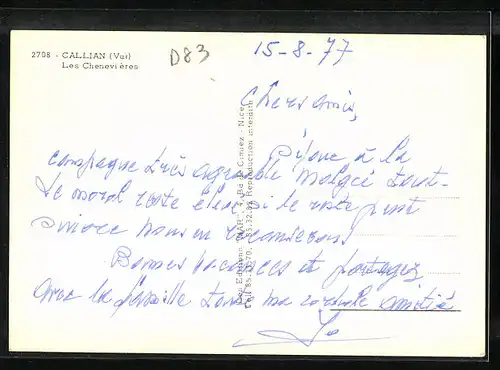 2708 - CALLIAN (Var)
Les Chenevières
D83
15-8-77
Chers amis,
Séjour à la
campagne très agréable Malgré tout
le moral reste élevé si le reste peut
suivre nous en
Bonnes vacances et partagez
avec la famille toute ma cordiale amitié
Jo
Les Editions "MAR", Cimiez - Nice
Reproduction interdite